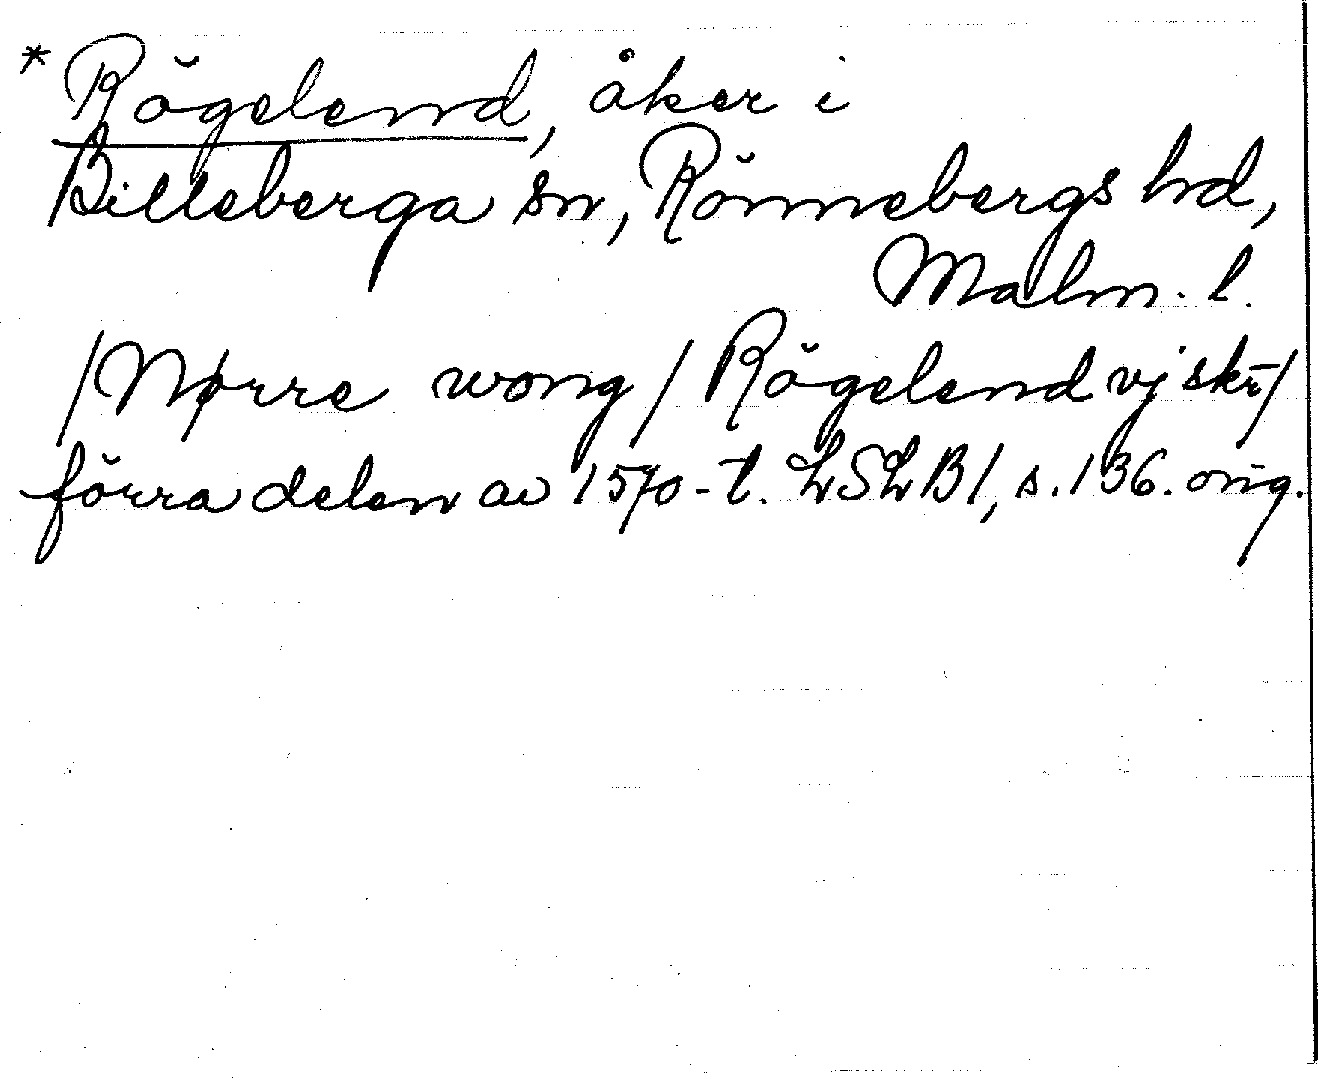 * Rögelend, åker i
Billeberga sn, Rönnebergs hd,
Malm. l.
/Nørre wong/ Rögelend vj skr/
förra delen av 1570-t. LSLB1, s. 136. orig.